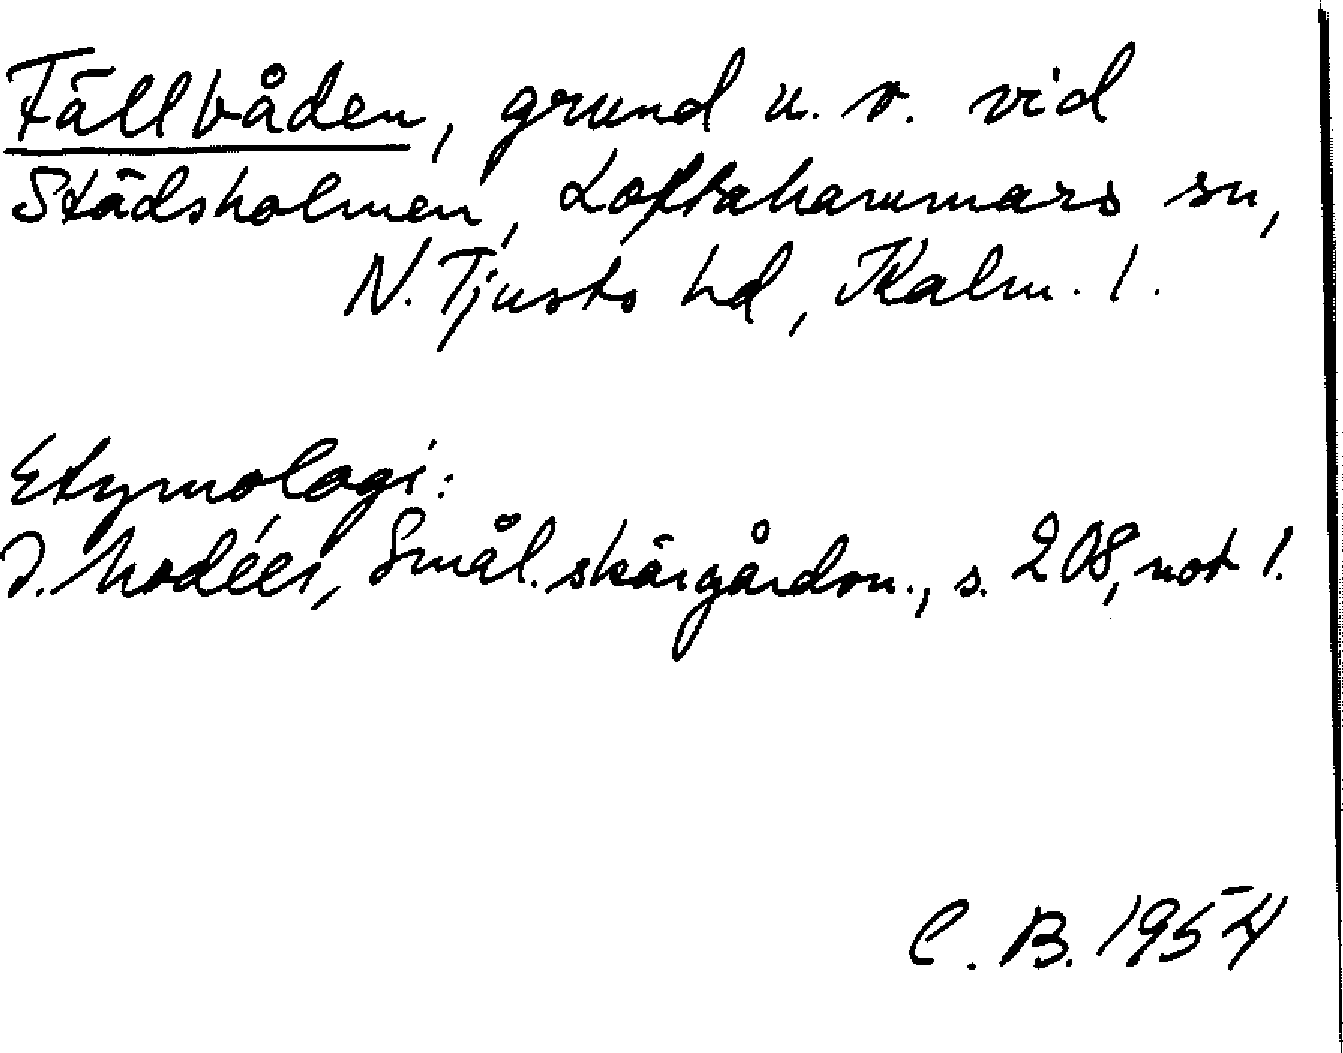 Fällbåden, grund u. v. vid
Städsholmen, Loftahammars sn,
N. Tjusts hd, Kalm. l.
Etymologi:
I. Modéer, Smål. skärgårdsn., s. 208, not 1.
C. B. 1954